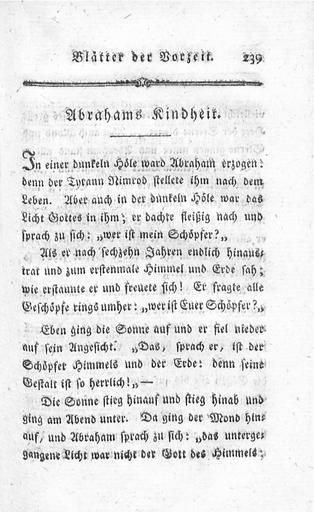 Blätter der Vorzeit. 239
Abrahams Kindheit.
In einer dunkeln Höle ward Abraham erzogen:
denn der Tyrann Nimrod stellete ihm nach dem
Leben. Aber auch in der dunkeln Höle war das
Licht Gottes in ihm; er dachte fleißig nach und
sprach zu sich: „wer ist mein Schöpfer?„
Als er nach sechzehn Jahren endlich hinaus-
trat und zum erstenmale Himmel und Erde sah;
wie erstaunte er und freuete sich! Er fragte alle
Geschöpfe rings umher: „wer ist Euer Schöpfer?„
Eben ging die Sonne auf und er fiel nieder
auf sein Angesicht. „Das, sprach er, ist der
Schöpfer Himmels und der Erde: denn seine
Gestalt ist so herrlich!„ —
Die Sonne stieg hinauf und stieg hinab und
ging am Abend unter. Da ging der Mond hin-
auf, und Abraham sprach zu sich: „das unterge-
gangene Licht war nicht der Gott des Himmels;